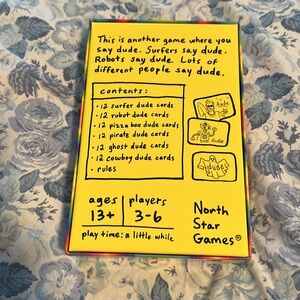 This is another game where you
say dude. Surfers say dude.
Robots say dude. Lots of
different people say dude.
contents:
• 12 surfer dude cards
• 12 robot dude cards
• 12 pizza box dude cards
• 12 pirate dude cards
• 12 ghost dude cards
• 12 cowboy dude cards
• rules
ages
13+
players
3-6
play time: a little while
North
Star
Games®